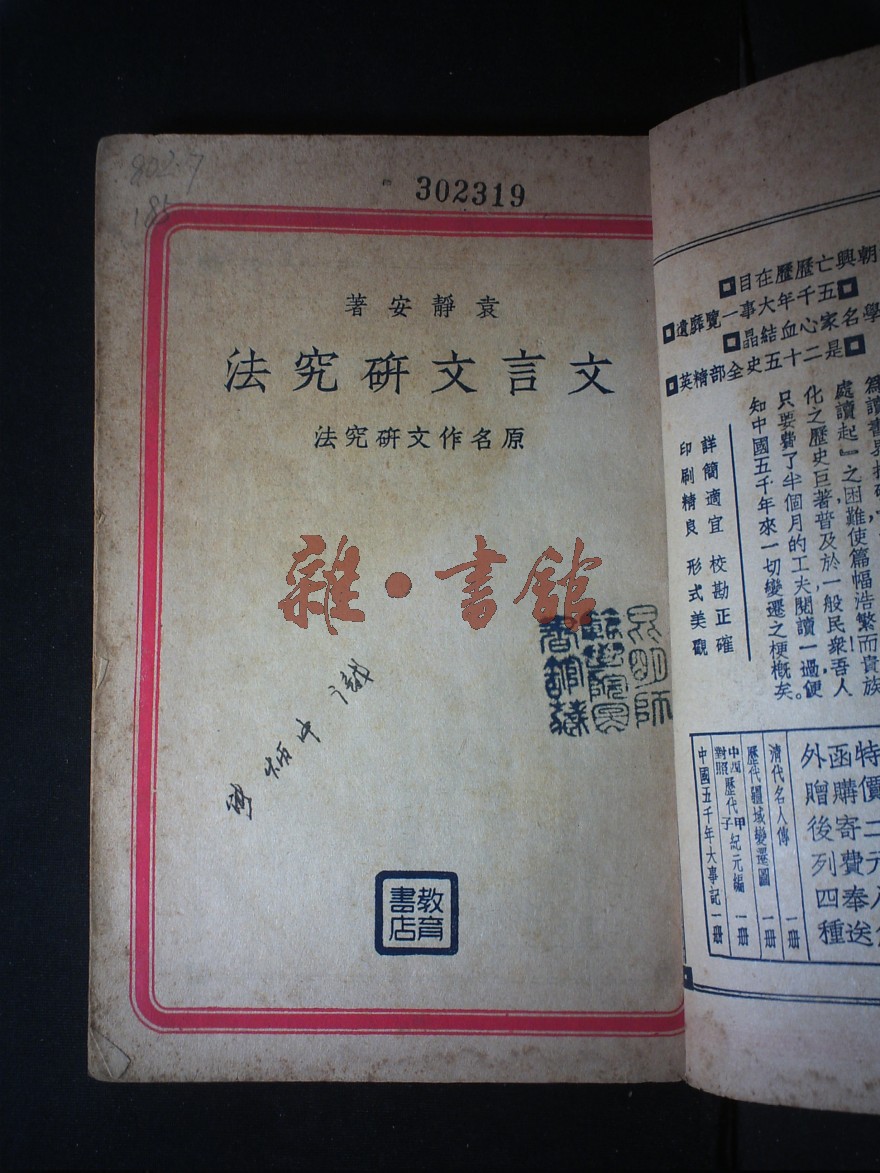 302319
袁靜安著
文言文研究法
原名作文研究法
雜·書館
昆明師
範學院圖
書館藏
炳中
教育
書店
朝興亡歷歷在目
五千年大事一覽靡遺
學名家心血結晶
是二十五史全部精英
處讀起』之困難,使篇幅浩繁而貴族
化之歷史巨著,普及於一般民衆,吾人
只要費了半個月的工夫閱讀一過,便
知中國五千年來一切變遷之梗概矣。
詳簡適宜 校勘正確
印刷精良 形式美觀
特價二元
函購寄費奉送
外贈後列四種
清代名人傳 一册
歷代疆域變遷圖 一册
中西對照歷代甲子紀元編 一册
中國五千年大事記 一册